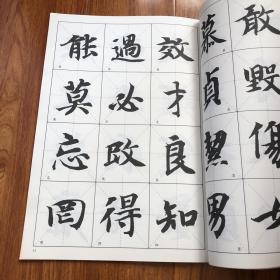 敢毀傷女
慕貞絜男
效才良知
過必改得
能莫忘罔